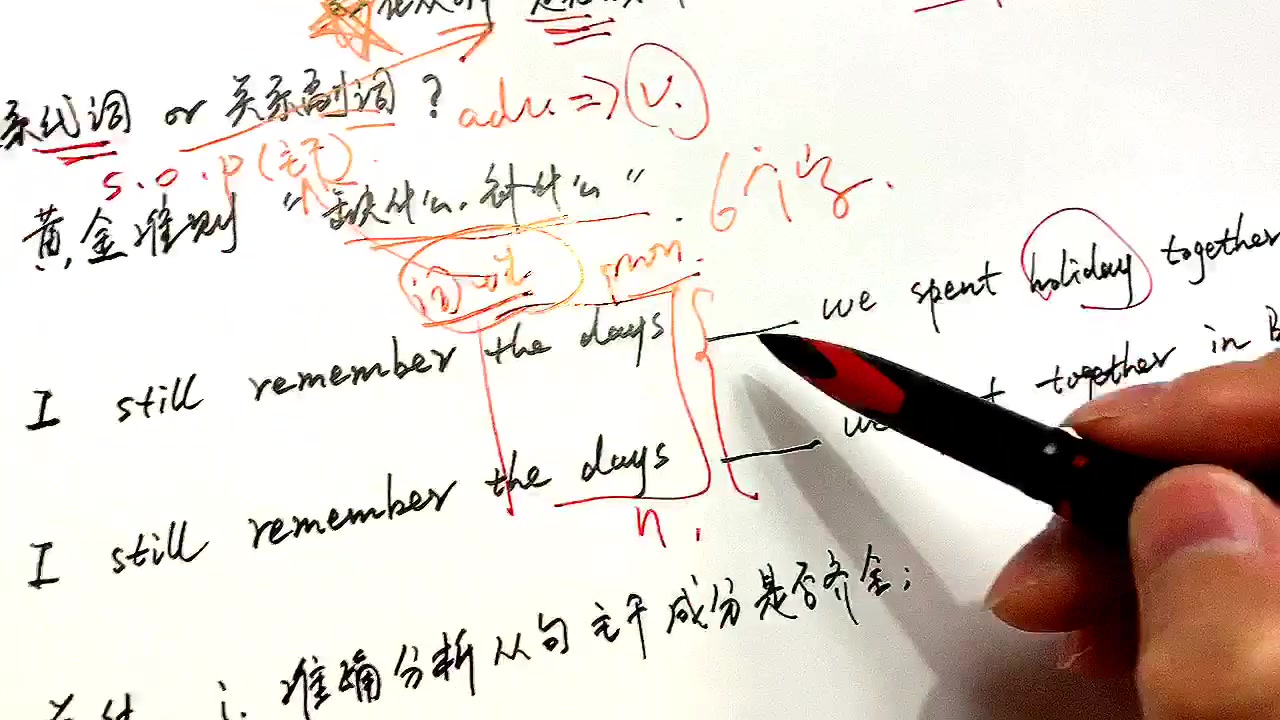 系代词 or 关系副词？ adv. => v.
s. o. p (主干).
黄金准则 "缺什么，补什么". 6个字.
pron.
I still remember the days —— we spent holiday together
I still remember the days —— we together in B
n.
i. 准确分析从句主干成分是否齐全；